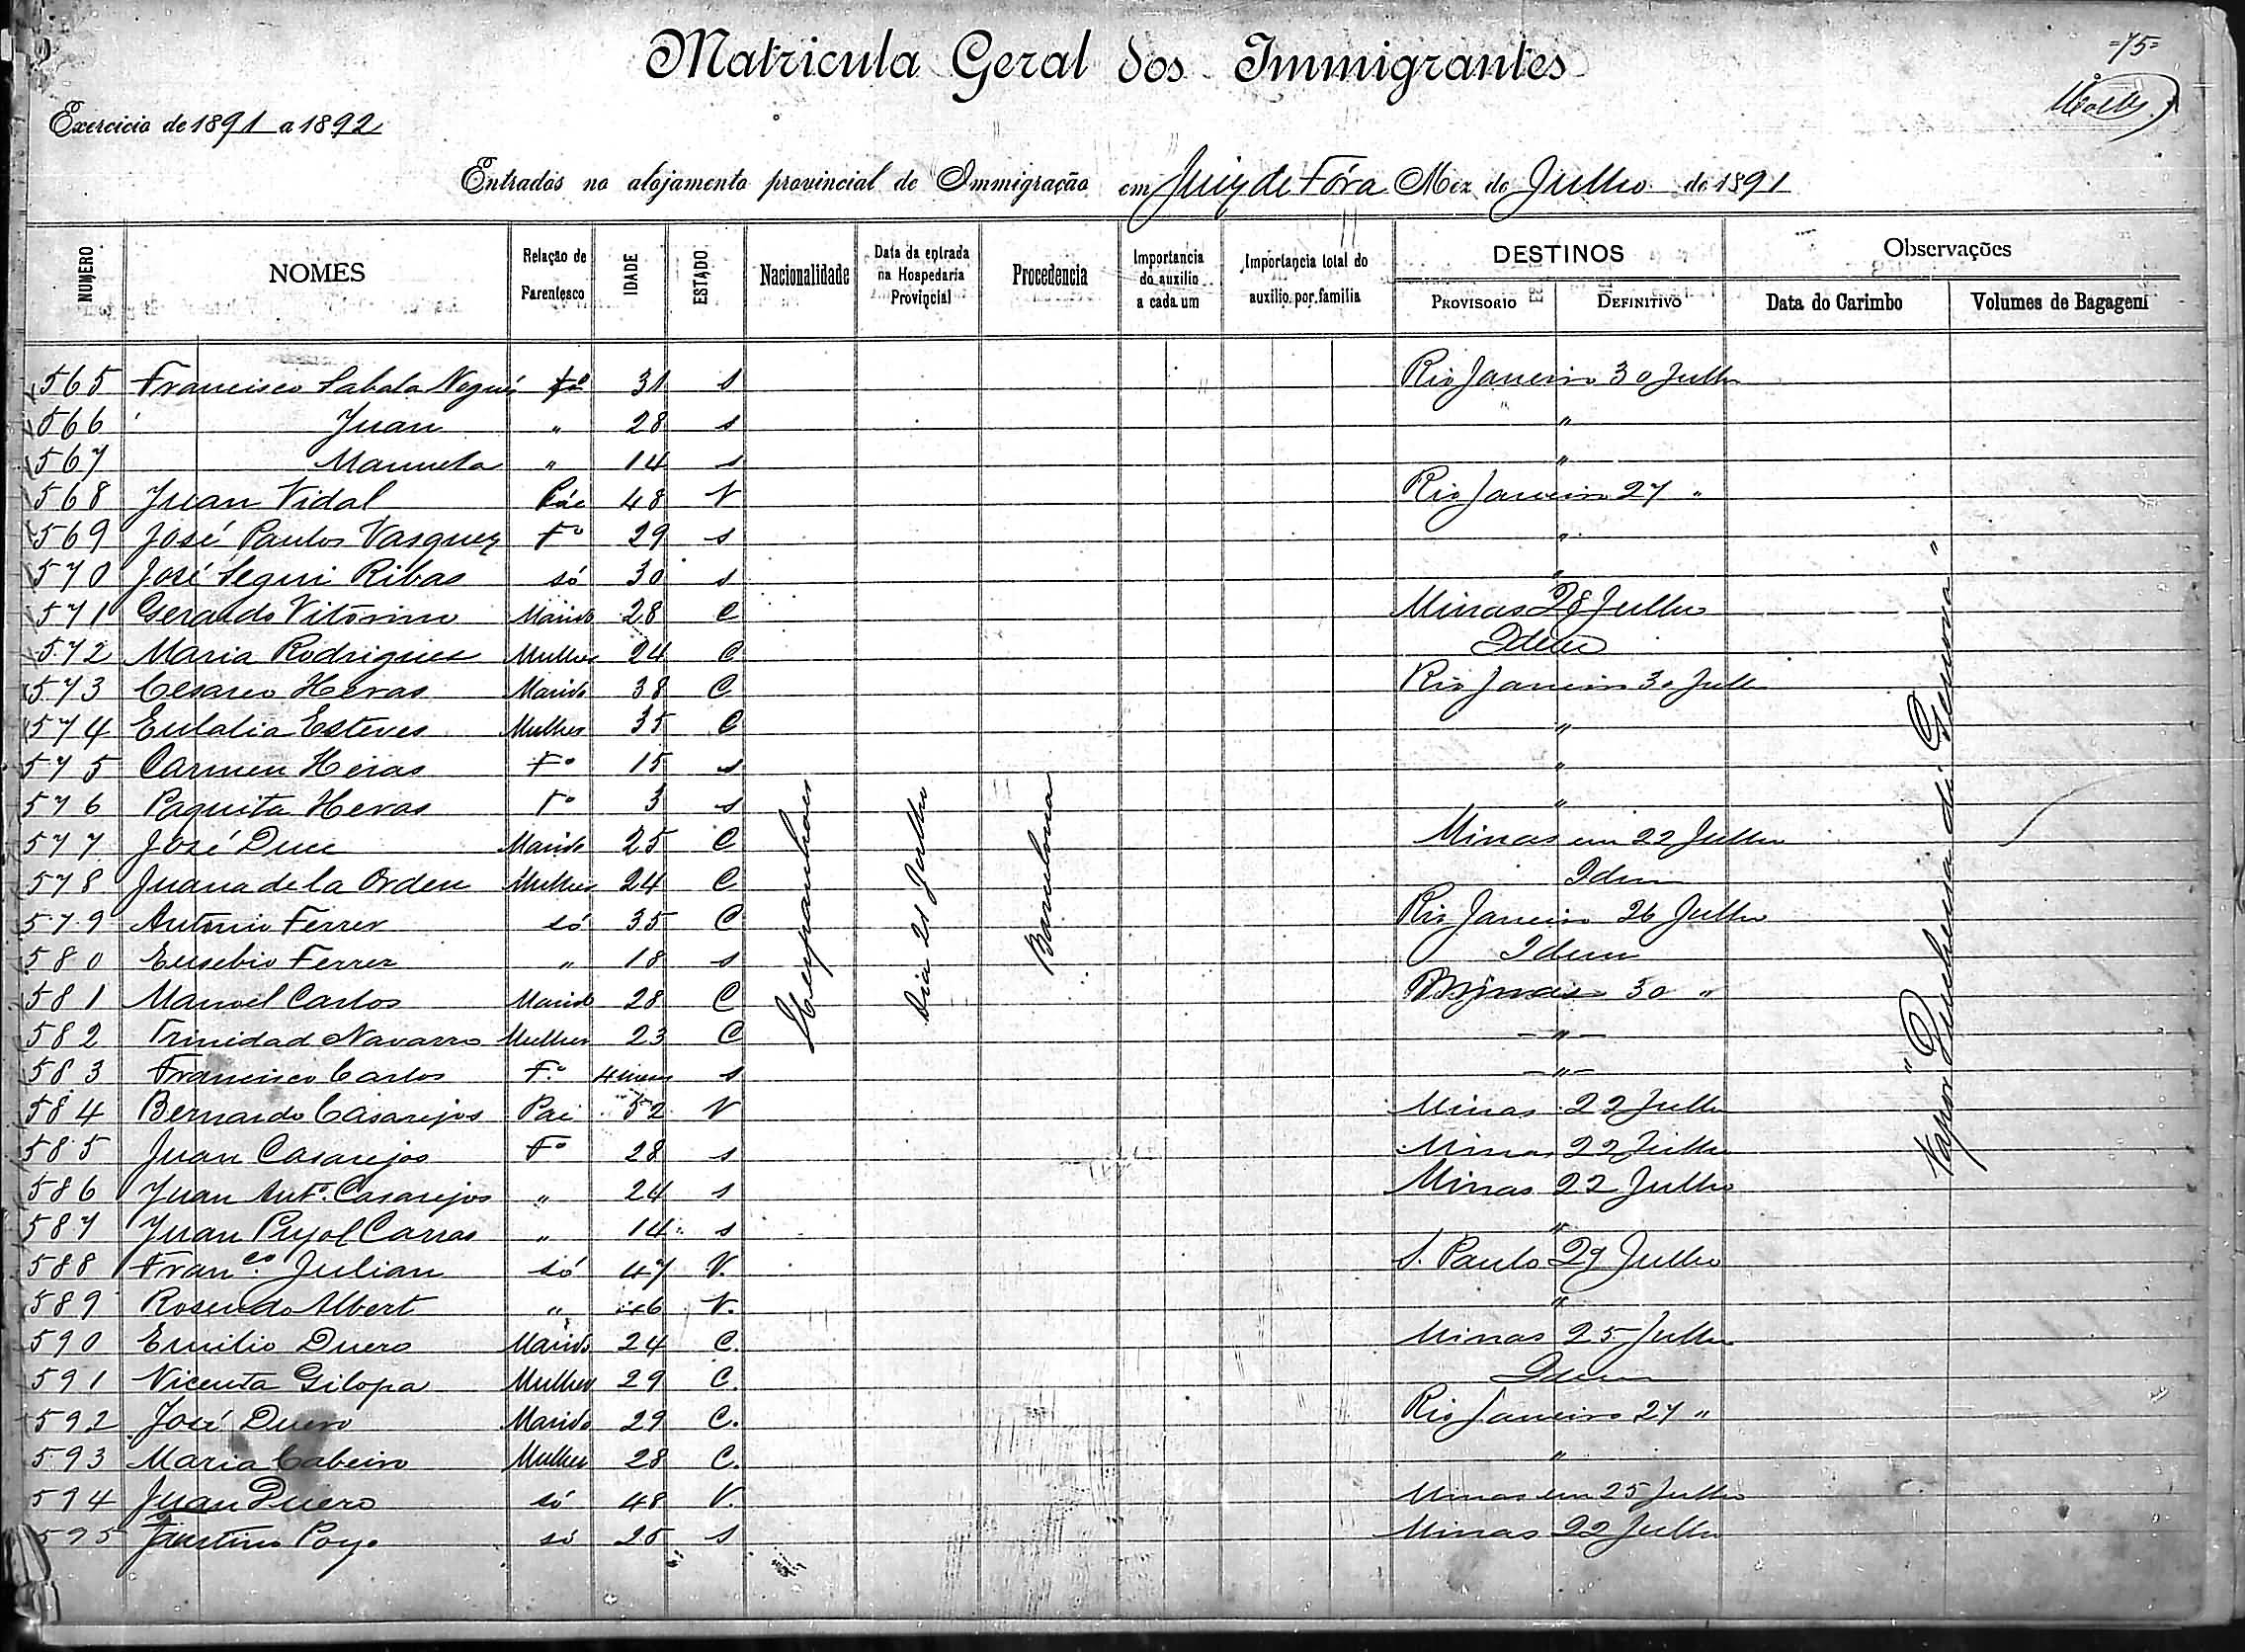 =75=
Matricula Geral dos Immigrantes
Exercicio de 1891 a 1892
Entrados no alojamento provincial de Immigração em Juiz de Fóra Mez de Julho de 1891
NUMERO NOMES Relação de Parentesco IDADE ESTADO Nacionalidade Data da entrada na Hospedaria Provincial Procedencia Importancia do auxilio a cada um Importancia total do auxilio por familia DESTINOS PROVISORIO DEFINITIVO Observações Data do Carimbo Volumes de Bagagem
565 Francisco Sabala Nogués Fº 31 s Rio Janeiro 30 Julho
566 Juan " 28 s " "
567 Manuela " 14 s "
568 Juan Vidal Páe 48 V Rio Janeiro 27 "
569 José Paulos Vasquez Fº 29 s "
570 José Segui Ribas só 30 s "
571 Gerardo Vitorino Marido 28 C Minas 28 Julho
572 Maria Rodrigues Mulher 24 C Idem
573 Cesareo Heras Marido 38 C Rio Janeiro 30 Julho
574 Eulalia Esteves Mulher 35 C "
575 Carmen Heras Fº 15 s "
576 Paquita Heras Fº 3 s "
577 José Duce Marido 25 C Minas em 22 Julho
578 Juana de la Orden Mulher 24 C Idem
579 Antonio Ferrer só 35 C Rio Janeiro 26 Julho
580 Eusebio Ferrer " 18 s Idem
581 Manoel Carlos Marido 28 C Minas 30 "
582 Trinidad Navarro Mulher 23 C - " -
583 Francisco Carlos Fº 4 mezes s - " -
584 Bernardo Casarejos Pai 52 V Minas 22 Julho
585 Juan Casarejos Fº 28 s Minas 22 Julho
586 Juan Antº. Casarejos " 24 s Minas 22 Julho
587 Juan Pujol Carras " 14 s "
588 Franco. Julian só 47 V. S. Paulo 29 Julho
589 Rosendo Albert " 46 V. "
590 Emilio Duero Marido 24 C. Minas 25 Julho
591 Vicenta Gilopa Mulher 29 C. Idem
592 José Duero Marido 29 C. Rio Janeiro 27 "
593 Maria Cabeiro Mulher 28 C. "
594 Juan Duero só 48 V. Minas em 25 Julho
595 Faustino Poyo só 25 s Minas 22 Julho
Hespanhoes
Dia 21 Julho
Barcelona
Vapor " Duchessa di Genova "